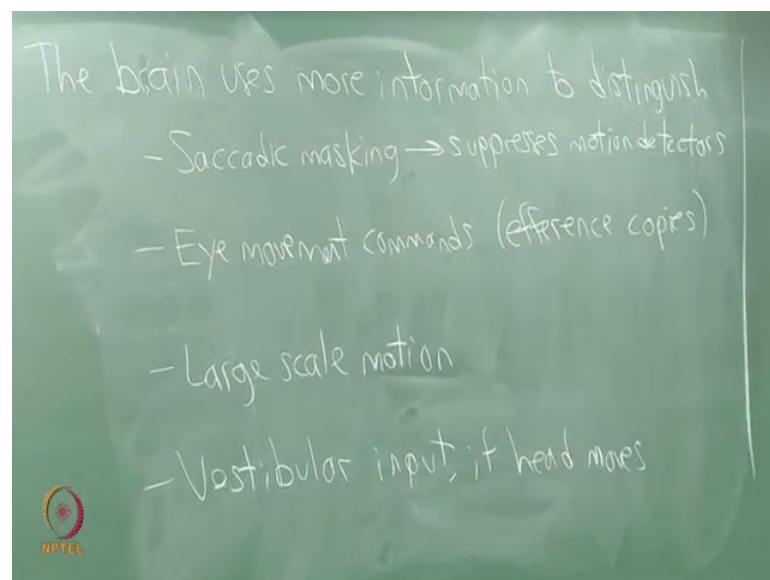 The brain uses more information to distinguish
- Saccadic masking → suppresses motion detectors
- Eye movement commands (efference copies)
- Large scale motion
- Vestibular input, if head moves
NPTEL